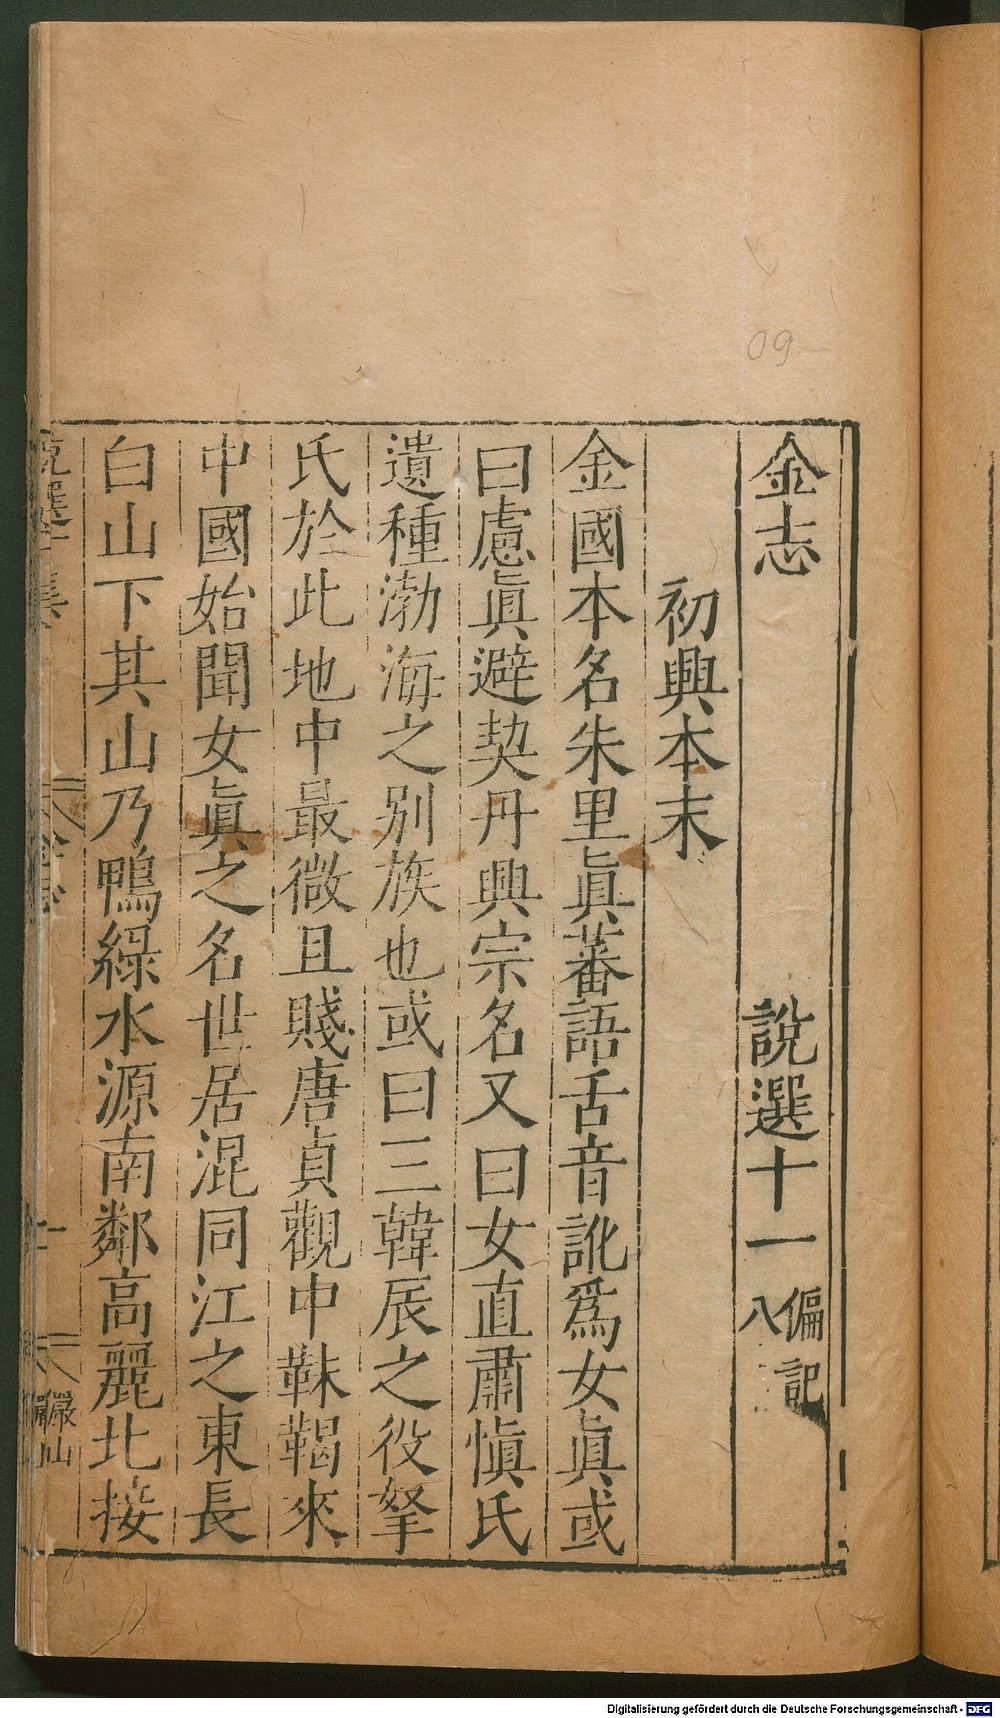 09
金志 說選十一 偏記八
初興本末
金國本名朱里眞蕃語舌音訛爲女眞或
曰慮眞避契丹興宗名又曰女直肅愼氏
遺種渤海之别族也或曰三韓辰之役拏
氏於此地中最微且賤唐貞觀中靺鞨來
中國始聞女眞之名世居混同江之東長
白山下其山乃鴨綠水源南鄰高麗北接
嚴山
Digitalisierung gefördert durch die Deutsche Forschungsgemeinschaft - DFG